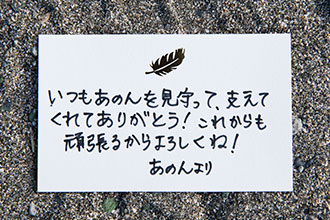 いつもあのんを見守って、支えて
くれてありがとう！これからも
頑張るからよろしくね！
あのんより